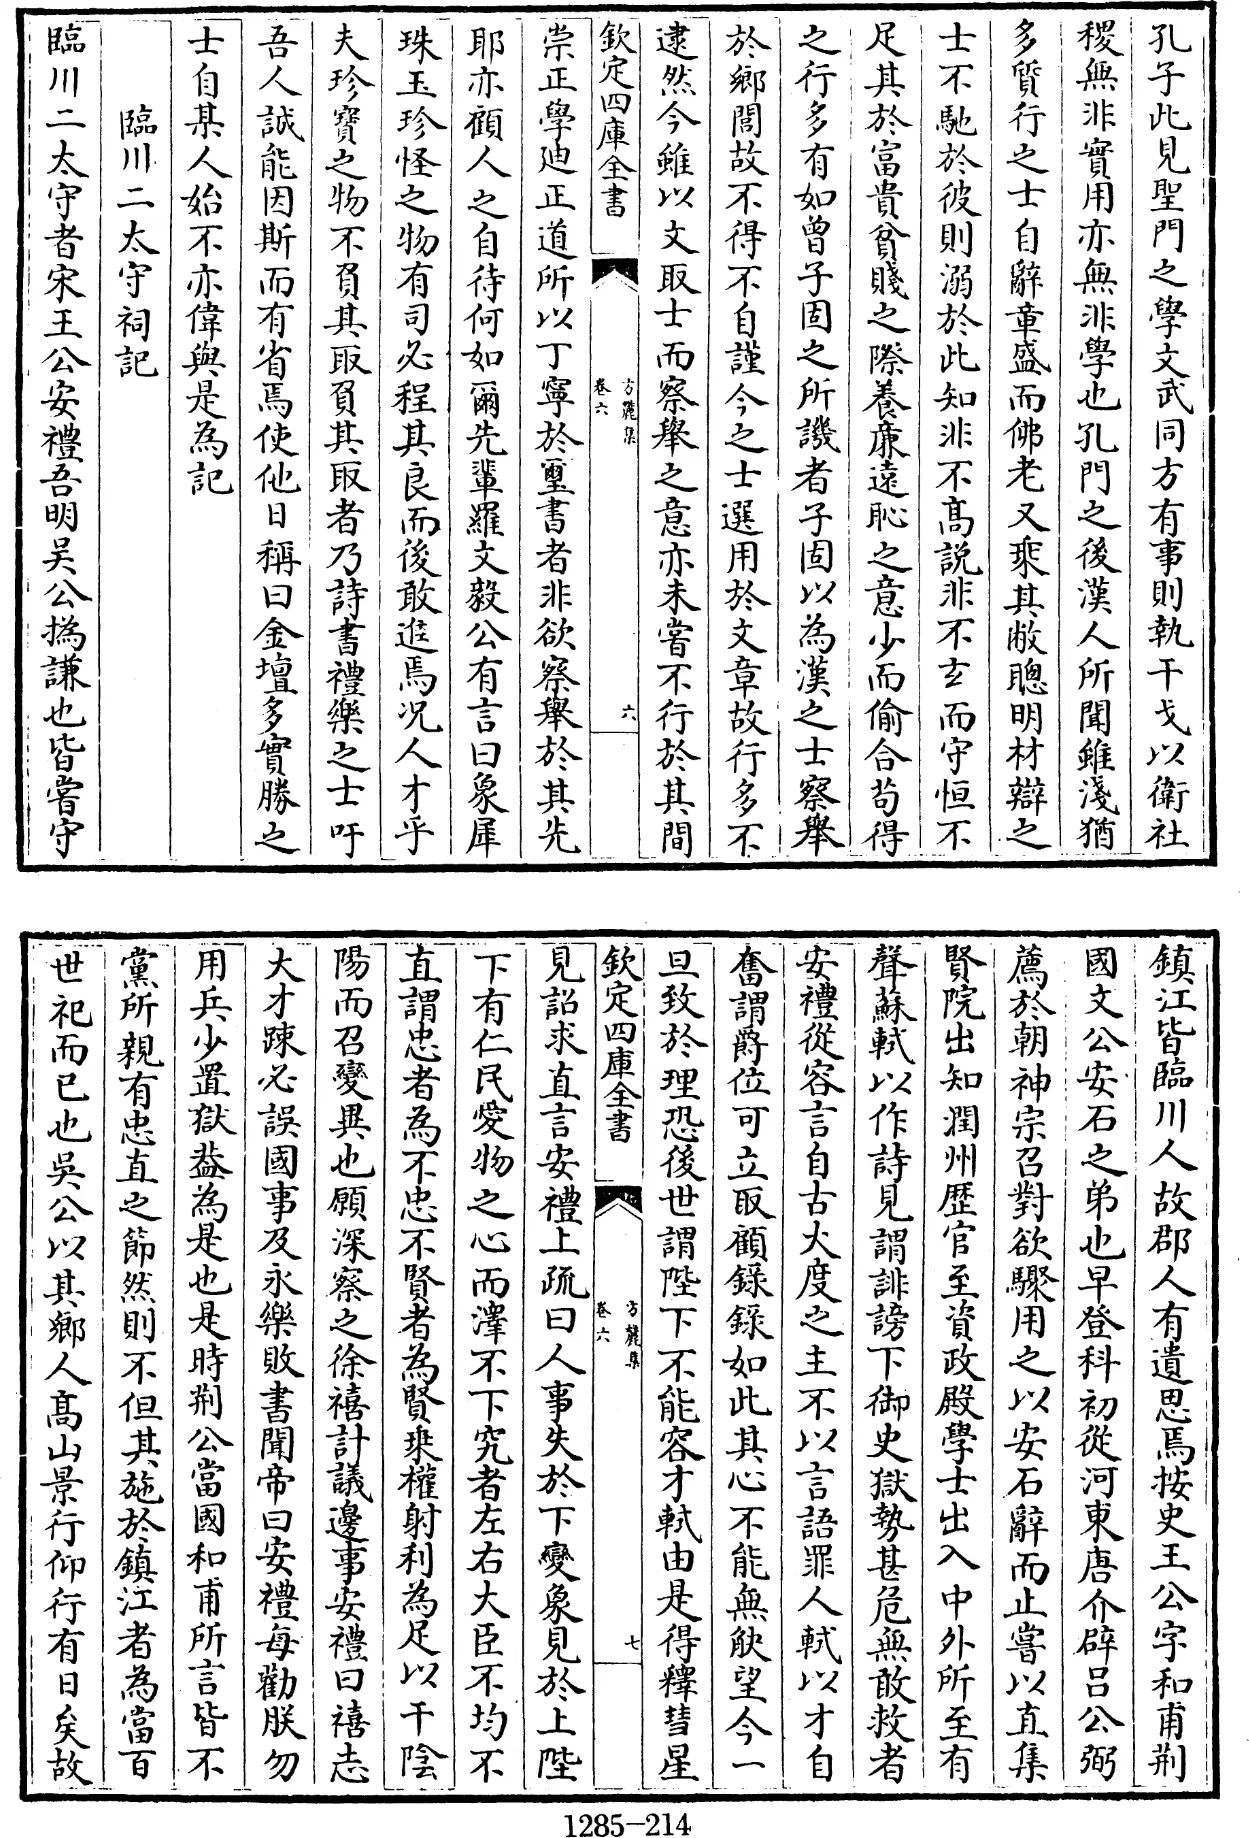 孔子此見聖門之學文武同方有事則執干戈以衛社
稷無非實用亦無非學也孔門之後漢人所聞雖淺猶
多質行之士自辭章盛而佛老又乘其敝聰明材辯之
士不馳於彼則溺於此知非不高説非不玄而守恒不
足其於富貴貧賤之際養廉遠恥之意少而偷合苟得
之行多有如曾子固之所譏者子固以為漢之士察舉
於鄉閭故不得不自謹今之士選用於文章故行多不
逮然今雖以文取士而察舉之意亦未嘗不行於其間
欽定四庫全書
方麓集
卷六
六
崇正學廸正道所以丁寧於璽書者非欲察舉於其先
耶亦顧人之自待何如爾先輩羅文毅公有言曰象犀
珠玉珍怪之物有司必程其良而後敢進焉况人才乎
夫珍寶之物不負其取負其取者乃詩書禮樂之士吁
吾人誠能因斯而有省焉使他日稱曰金壇多實勝之
士自某人始不亦偉與是為記
臨川二太守祠記
臨川二太守者宋王公安禮吾明吳公撝謙也皆嘗守
鎮江皆臨川人故郡人有遺思焉按史王公字和甫荆
國文公安石之弟也早登科初從河東唐介辟吕公弼
薦於朝神宗召對欲驟用之以安石辭而止嘗以直集
賢院出知潤州歴官至資政殿學士出入中外所至有
聲蘇軾以作詩見謂誹謗下御史獄勢甚危無敢救者
安禮從容言自古大度之主不以言語罪人軾以才自
奮謂爵位可立取顧錄錄如此其心不能無觖望今一
旦致於理恐後世謂陛下不能容才軾由是得釋彗星
欽定四庫全書
方麓集
卷六
七
見詔求直言安禮上疏曰人事失於下變象見於上陛
下有仁民愛物之心而澤不下究者左右大臣不均不
直謂忠者為不忠不賢者為賢乗權射利為足以干陰
陽而召變異也願深察之徐禧計議邊事安禮曰禧志
大才踈必誤國事及永樂敗書聞帝曰安禮每勸朕勿
用兵少置獄葢為是也是時荆公當國和甫所言皆不
黨所親有忠直之節然則不但其施於鎮江者為當百
世祀而已也吳公以其鄉人高山景行仰行有日矣故
1285-214